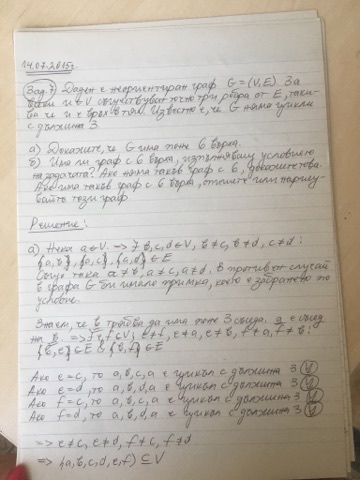 14.07.2015г.
Зад. 7) Даден е неориентиран граф G=(V,E). За
всеки u∈V съществуват точно три ребра от E, таки-
ва че u е връх в тях. Известно е, че G няма цикли
с дължина 3.
а) Докажете, че G има поне 6 върха.
б) Има ли граф с 6 върха, изпълняващ условието
на задачата? Ако няма такъв граф с 6, докажете това.
Ако има такъв граф с 6 върха, опишете или нарису-
вайте този граф.
Решение:
а) Нека a∈V. => ∃ b,c,d∈V, b≠c, b≠d, c≠d:
{a,b}, {a,c}, {a,d} ∈ E
Също така a≠b, a≠c, a≠d. В противен случай
в графа G би имало примка, което е забранено по
условие.
Знаем, че b трябва да има поне 3 съседа. a е съсед
на b. => ∃ e,f∈V: e≠f, e≠a, e≠b, f≠a, f≠b:
{b,e}∈E & {b,f}∈E
Ако e=c, то a,b,c,a е цикъл с дължина 3
Ако e=d, то a,b,d,a е цикъл с дължина 3
Ако f=c, то a,b,c,a е цикъл с дължина 3
Ако f=d, то a,b,d,a е цикъл с дължина 3
=> e≠c, e≠d, f≠c, f≠d
=> {a,b,c,d,e,f} ⊆ V